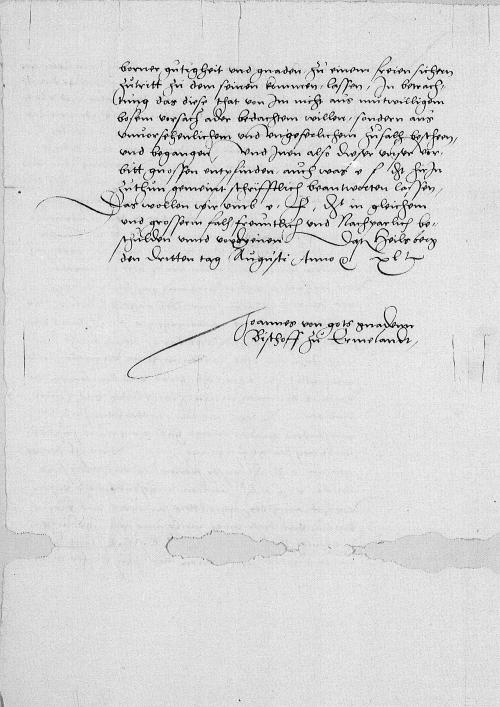 borner gutigheit und gnaden, zu einem freien sichern
zutritt zu dem seinen kommen lassen, In betrach-
tung das diese that von Im nicht aus mutwilligem
bosem vorsatz ader bedachten willen, sondern aus
unvorsehenlichem und ungeferlichem zufalh beschen,
und begangen, und Inen also dieser unser vor-
bitt genossen entpfinden, auch was e f Dt hir In
zuthun gemeint schrifftlich beantworten lassen,
Das wollen wir umb e. f. Dt in gleichem
und grosserm falh freuntlich und Nachparlich be-
schulden unnd vordienen Dat Heilsberg
den dritten tag Augusti Anno xl
Joannes von gots gnadenn
Bischoff zu Ermelandt,